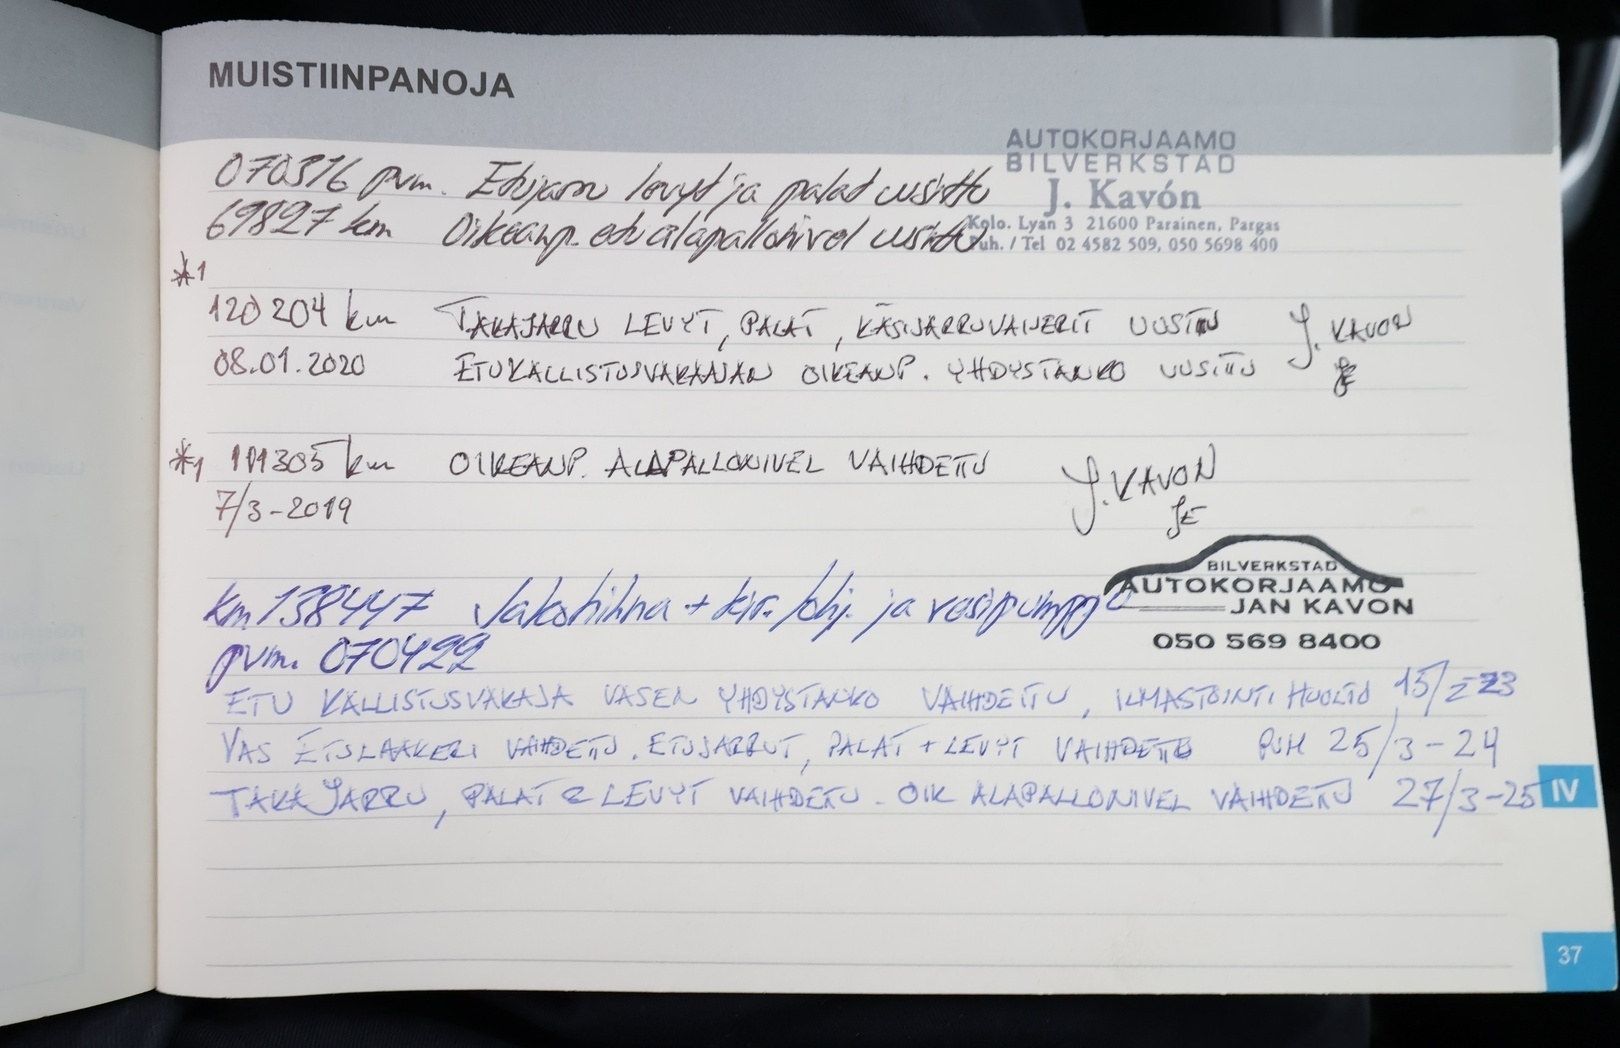 MUISTIINPANOJA
AUTOKORJAAMO
BILVERKSTAD
J. Kavón
Kolo. Lyan 3 21600 Parainen, Pargas
Puh. / Tel 02 4582 509, 050 5698 400
070316 pvm. Etujarru levyt ja palat uusittu
69827 km Oikeanp. etu alapallonivel uusittu
*1
120 204 km TAKAJARRU LEVYT, PALAT, KÄSIJARRUVAIJERIT UUSITTU J. KAVON
08.01.2020 ETUKALLISTUSVAKAAJAN OIKEANP. YHDYSTANKO UUSITTU JE
*1 111305 km OIKEANP. ALAPALLONIVEL VAIHDETTU J. KAVON
7/3-2019 JE
BILVERKSTAD
AUTOKORJAAMO
JAN KAVON
050 569 8400
km 138447 Jakohihna + kir./ohj. ja vesipumppu
pvm. 070422
ETU KALLISTUSVAKAJA VASEN YHDYSTANKO VAIHDETTU, ILMASTOINTI HUOLTO 15/2-23
VAS ETULAAKERI VAIHDETTU. ETUJARRUT, PALAT + LEVYT VAIHDETTU PVM 25/3-24
TAKAJARRU, PALAT & LEVYT VAIHDETTU. OIK ALAPALLONIVEL VAIHDETTU 27/3-25
IV
37